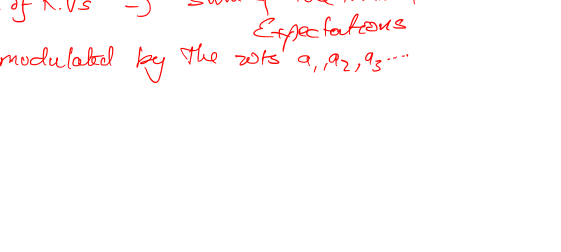 of R.Vs → sum of
Expectations
modulated by the wts a₁, a₂, a₃ ....